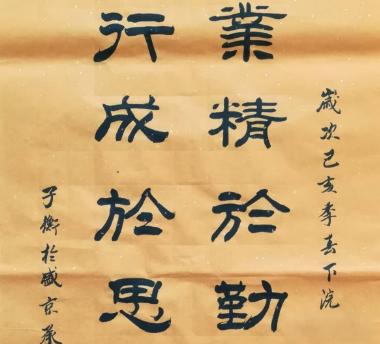 歲次己亥季春下浣
業精於勤
行成於思
子衡於盛京